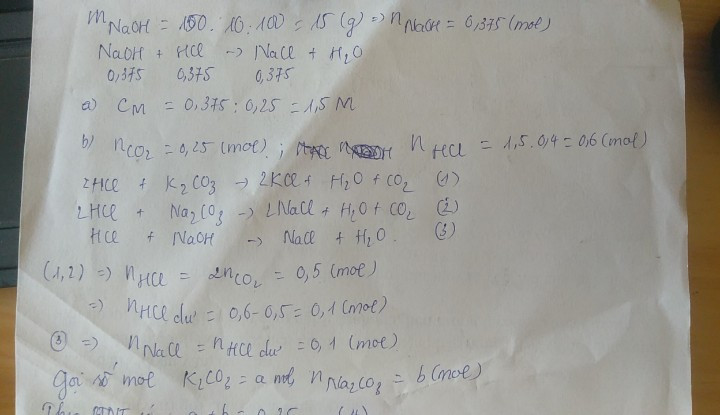 mNaOH = 150. 10: 100 = 15 (g) => nNaOH = 0,375 (mol)
NaOH + HCl -> NaCl + H2O
0,375 0,375 0,375
a) CM = 0,375 : 0,25 = 1,5 M
b) nCO2 = 0,25 (mol) ; nHCl = 1,5 . 0,4 = 0,6 (mol)
2HCl + K2CO3 -> 2KCl + H2O + CO2 (1)
2HCl + Na2CO3 -> 2NaCl + H2O + CO2 (2)
HCl + NaOH -> NaCl + H2O. (3)
(1,2) => nHCl = 2nCO2 = 0,5 (mol)
=> nHCl dư = 0,6 - 0,5 = 0,1 (mol)
③ => nNaCl = nHCl dư = 0,1 (mol)
Gọi số mol K2CO3 = a mol, nNa2CO3 = b (mol)
a + b = 0,25 (4)